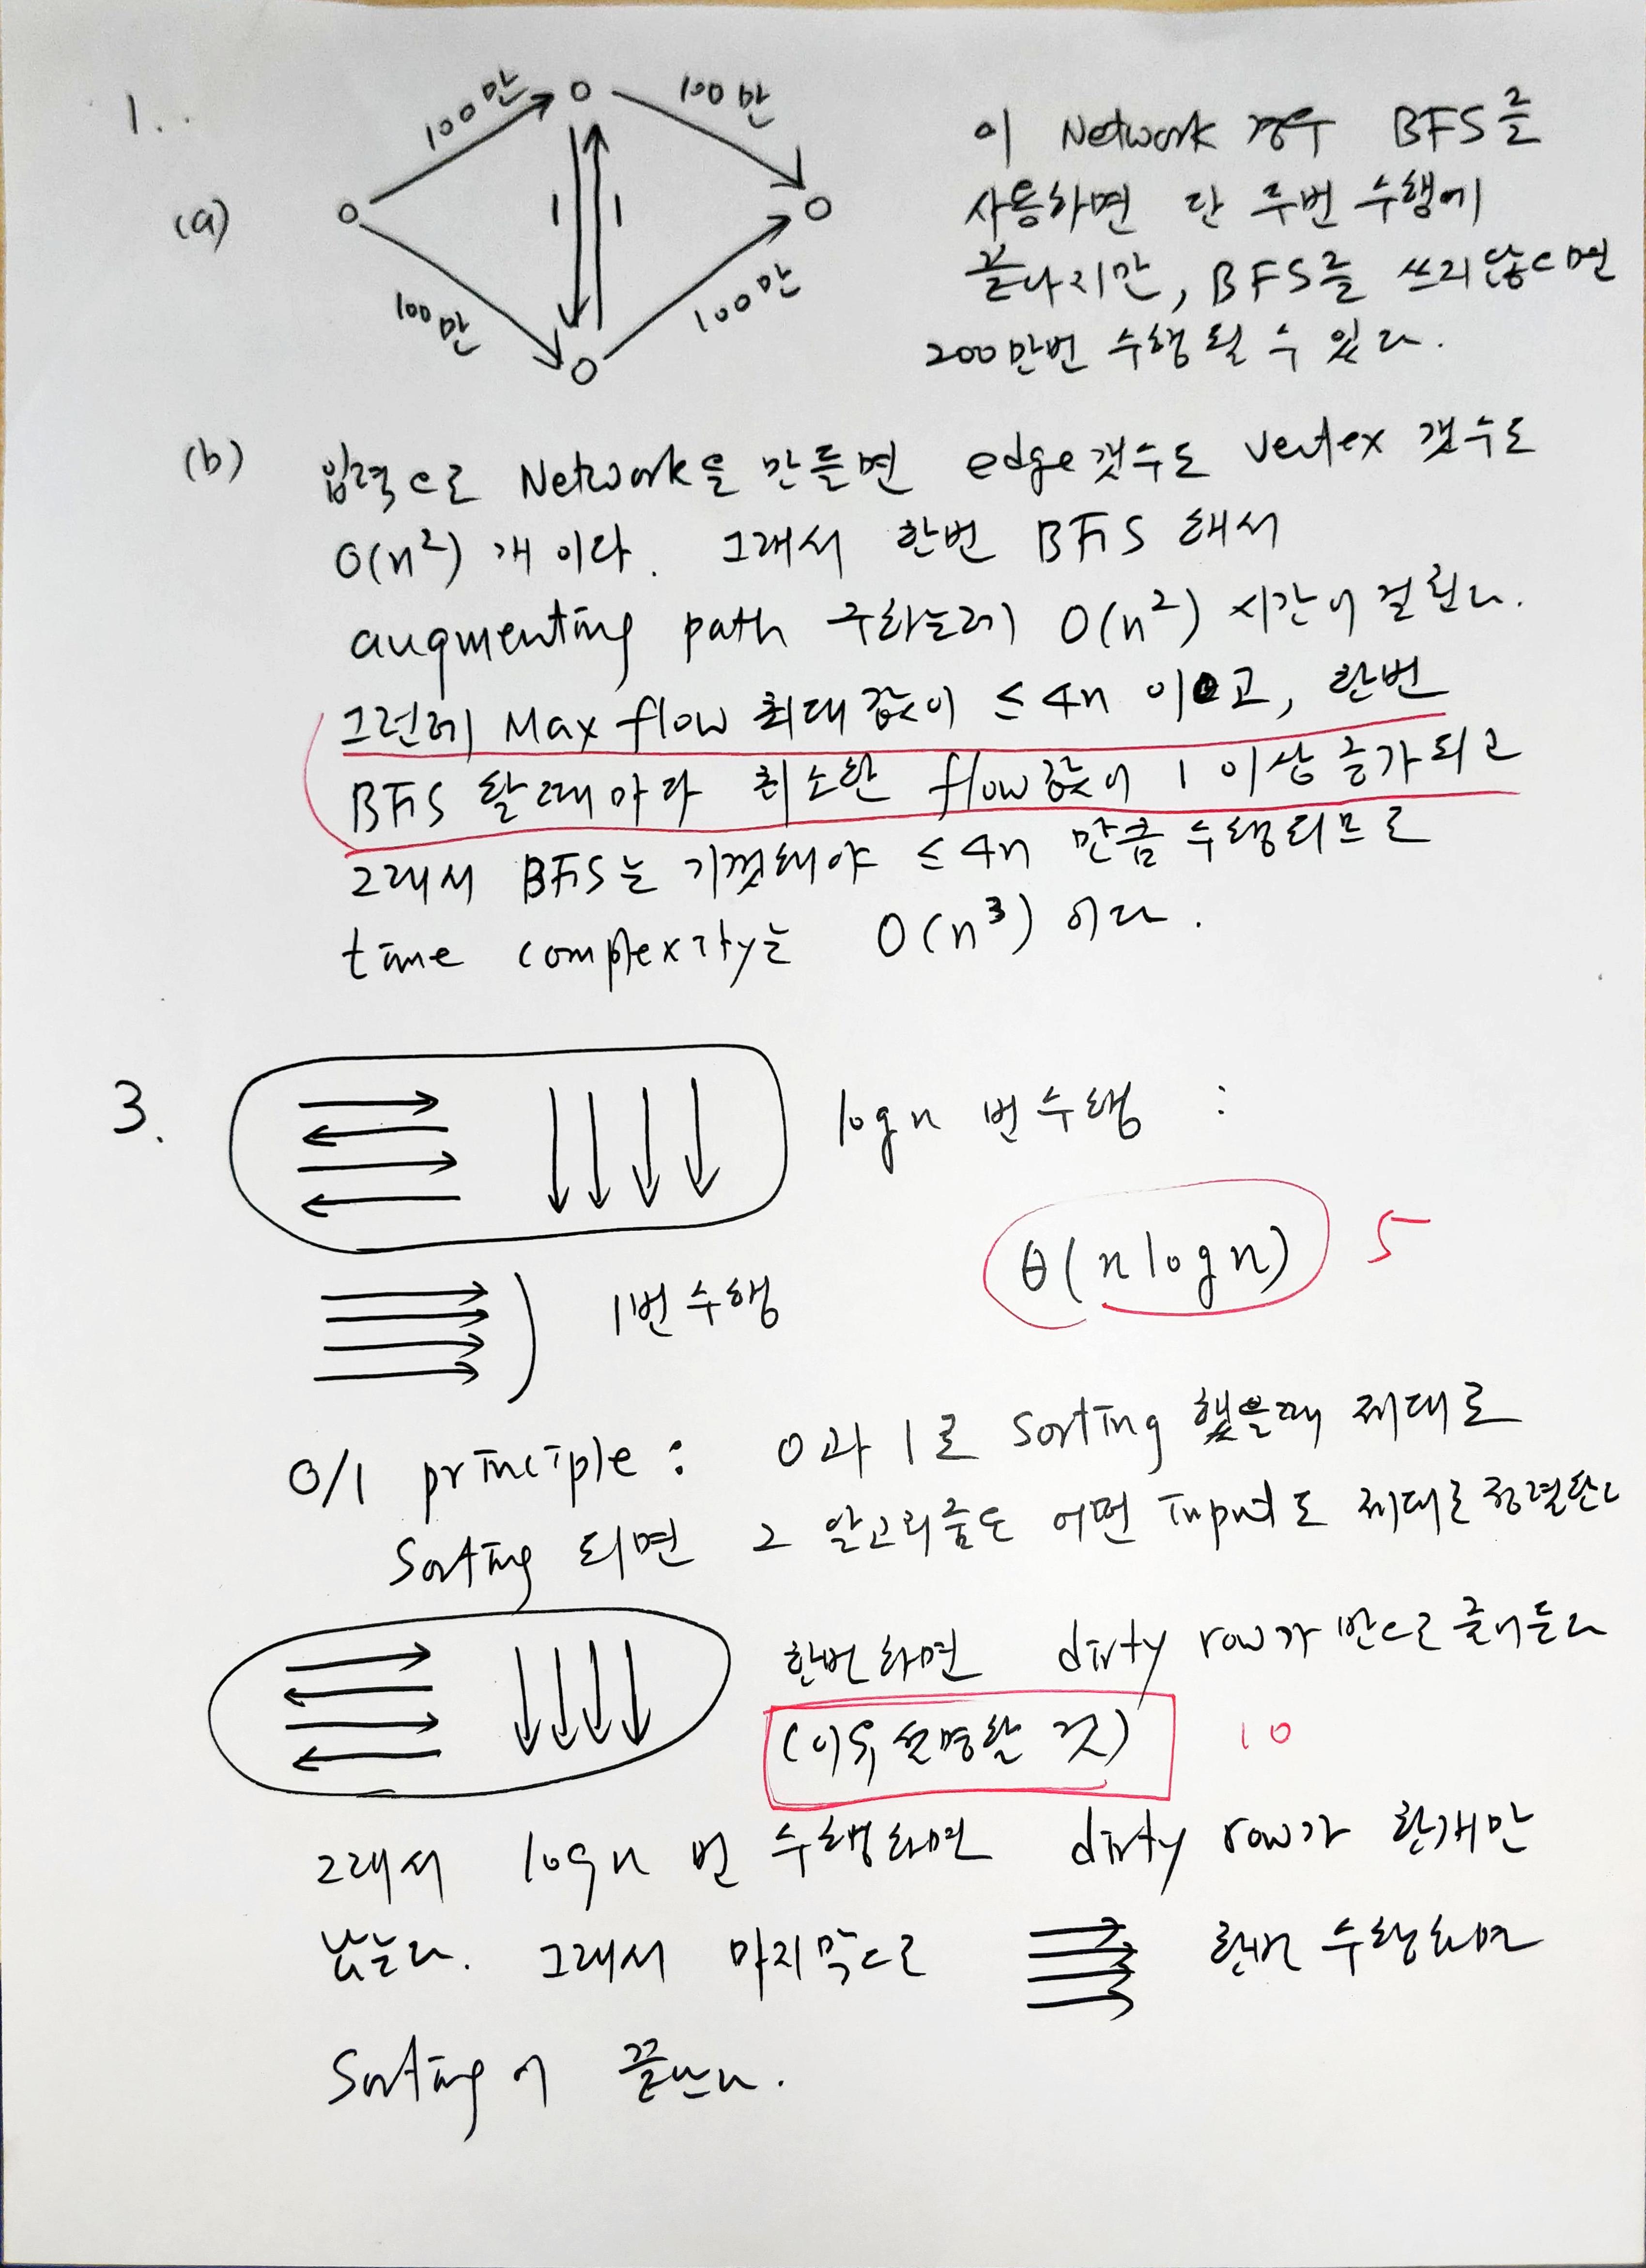 1.
100만
100만
(a)
1
1
100만
100만
이 Network 경우 BFS를
사용하면 단 두번 수행에
끝나지만, BFS를 쓰지않으면
200만번 수행될 수 있다.
(b) 입력으로 Network을 만들면 edge갯수도 vertex 갯수도
O(n²) 개 이다. 그래서 한번 BFS 해서
augmenting path 구하는데 O(n²) 시간이 걸린다.
그런데 Max flow 최대값이 ≤ 4n 이고, 한번
BFS 할때마다 최소한 flow값이 1 이상 증가되고
그래서 BFS는 기껏해야 ≤ 4n 만큼 수행되므로
time complexity는 O(n³) 이다.
3. log n 번 수행 :
θ(n log n) 5
1번 수행
0/1 principle : 0과 1로 Sorting 했을때 제대로
Sorting 되면 그 알고리즘은 어떤 input도 제대로 정렬한다
한번하면 dirty row가 반으로 줄어든다
(이유 설명할 것) 10
그래서 log n 번 수행하면 dirty row가 한개만
남는다. 그래서 마지막으로 한번 수행하면
Sorting이 끝난다.